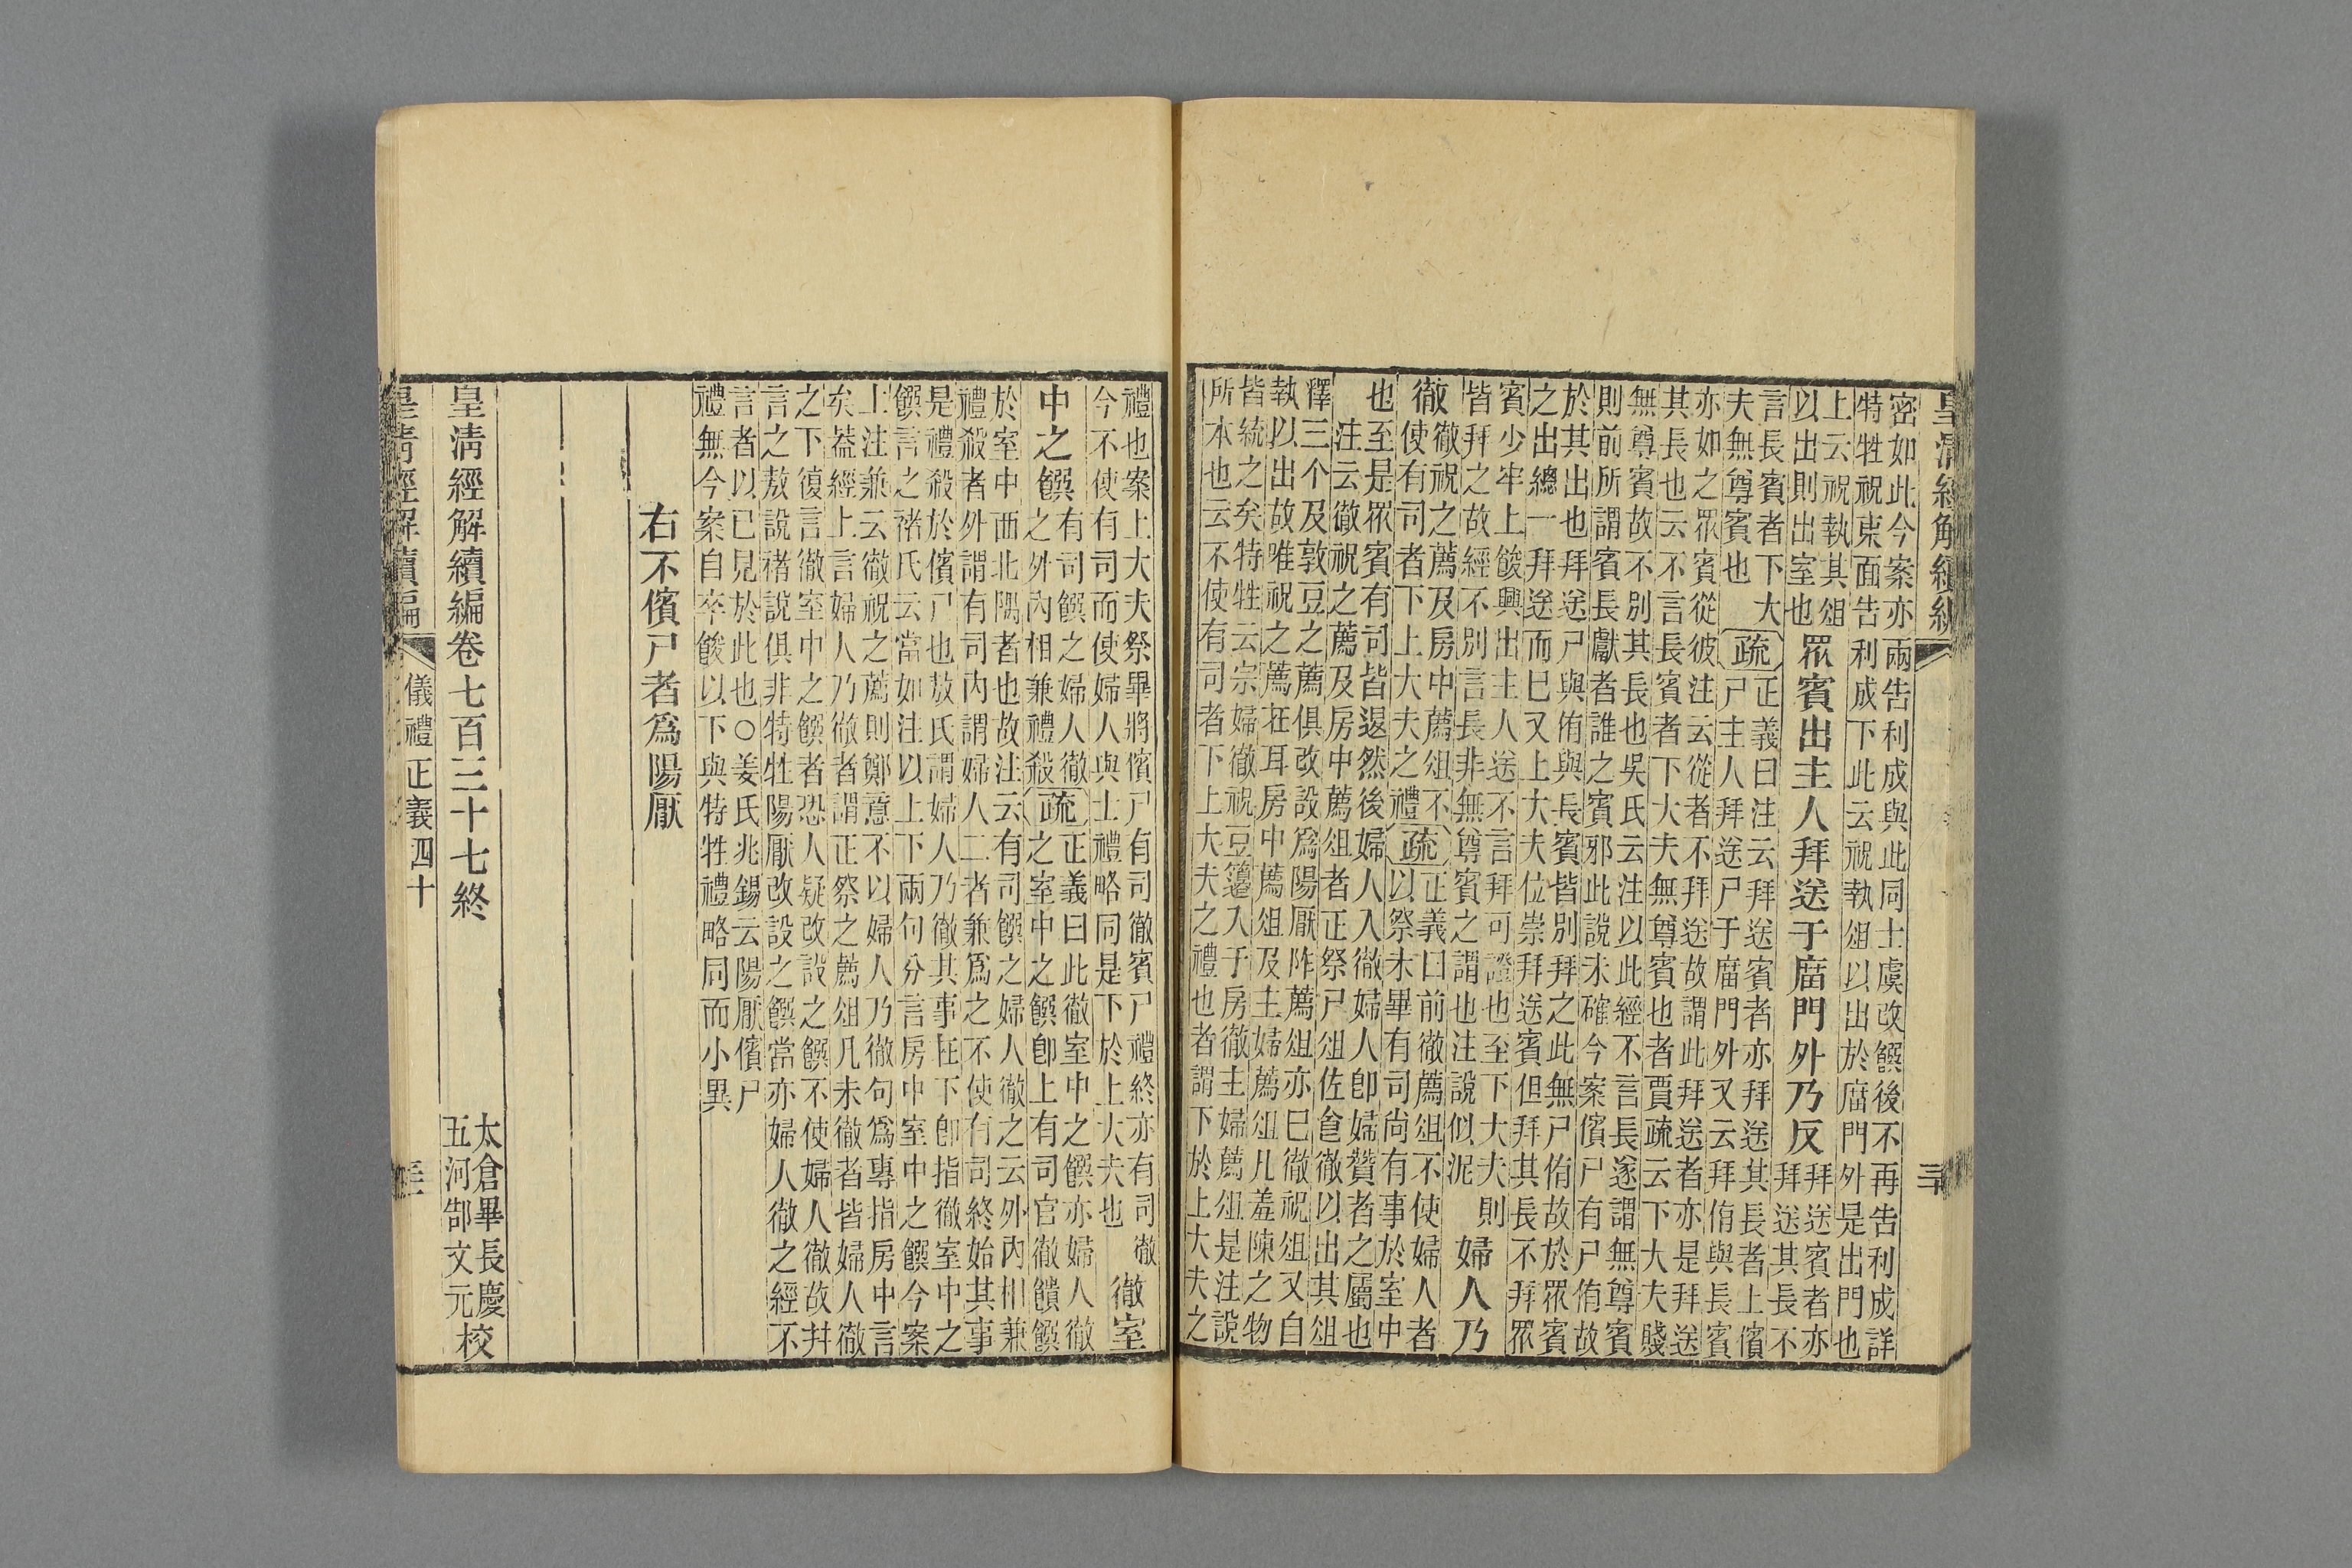 皇清經解續編
三十
密如此今案亦兩告利成與此同士虞改饌後不再告利成詳
特牲祝東面告利成下此云祝執俎以出於廟門外是出門也
上云祝執其俎
以出則出室也
眾賓出主人拜送于廟門外乃反
拜送賓者亦
拜送其長不
言長賓者下大
夫無尊賓也
疏
正義曰注云拜送賓者亦拜送其長者上儐
尸主人拜送尸于廟門外又云拜侑與長賓
亦如之眾賓從彼注云從者不拜送故謂此拜送者亦是拜送
其長也云不言長賓者下大夫無尊賓也者賈疏云下大夫賤
無尊賓故不別其長也吳氏云注以此經不言長遂謂無尊賓
則前所謂賓長獻者誰之賓邪此說未確今案儐尸有尸侑故
於其出也拜送尸與侑與長賓皆別拜之此無尸侑故於眾賓
之出總一拜送而已又上大夫位崇拜送賓但拜其長不拜眾
賓少牢上餕興出主人送不言拜可證也至下大夫則
皆拜之故經不別言長非無尊賓之謂也注說似泥
婦人乃
徹
徹祝之薦及房中薦俎不
使有司者下上大夫之禮
疏
正義曰前徹薦俎不使婦人者
以祭未畢有司尚有事於室中
也至是眾賓有司皆退然後婦人入徹婦人卽婦贊者之屬也
注云徹祝之薦及房中薦俎者正祭尸俎佐食徹以出其俎
釋三个及敦豆之薦俱改設爲陽厭阼薦俎亦已徹祝俎又自
執以出故唯祝之薦在耳房中薦俎及主婦薦俎凡羞陳之物
皆統之矣特牲云宗婦徹祝豆籩入于房徹主婦薦俎是注說
所本也云不使有司者下上大夫之禮也者謂下於上大夫之
禮也案上大夫祭畢將儐尸有司徹賓尸禮終亦有司徹
今不使有司而使婦人與士禮略同是下於上大夫也
徹室
中之饌
有司饌之婦人徹
之外內相兼禮殺
疏
正義曰此徹室中之饌亦婦人徹
之室中之饌卽上有司官徹饋饌
於室中西北隅者也故注云有司饌之婦人徹之云外內相兼
禮殺者外謂有司內謂婦人二者兼爲之不使有司終始其事
是禮殺於儐尸也敖氏謂婦人乃徹其事在下卽指徹室中之
饌言之褚氏云當如注以上下兩句分言房中室中之饌今案
上注兼云徹祝之薦則鄭意不以婦人乃徹句爲專指房中言
矣葢經上言婦人乃徹者謂正祭之薦俎凡未徹者皆婦人徹
之下復言徹室中之饌者恐人疑改設之饌不使婦人徹故幷
言之敖說褚說俱非特牲陽厭改設之饌當亦婦人徹之經不
言者以已見於此也○姜氏兆錫云陽厭儐尸
禮無今案自卒餕以下與特牲禮略同而小異
右不儐尸者爲陽厭
皇清經解續編卷七百三十七終
太倉畢長慶
五河郜文元
校
皇清經解續編
儀禮正義四十